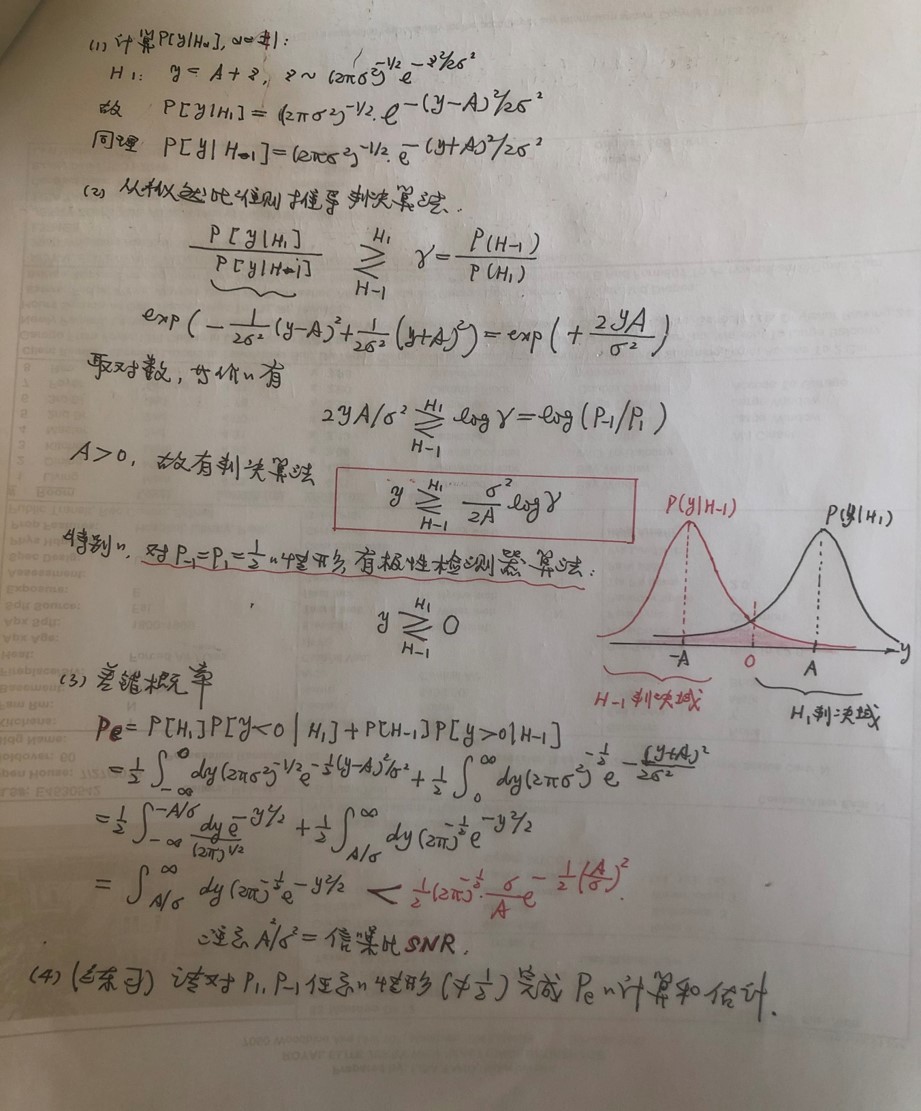 (1) 计算P[y|Hα], α=±1:
H1: y = A + z, z ~ (2πσ²)^{-1/2} e^{-z²/2σ²}
故 P[y|H1] = (2πσ²)^{-1/2} · e^{-(y-A)²/2σ²}
同理 P[y|H-1] = (2πσ²)^{-1/2} · e^{-(y+A)²/2σ²}
(2) 从似然比准则推导判决算法.
P[y|H1] / P[y|H-1] ≷^{H1}_{H-1} γ = P(H-1) / P(H1)
exp(-1/2σ² (y-A)² + 1/2σ² (y+A)²) = exp(+ 2yA/σ²)
取对数, 等价的有
2yA/σ² ≷^{H1}_{H-1} log γ = log(P-1/P1)
A>0, 故有判决算法
y ≷^{H1}_{H-1} σ²/2A log γ
P(y|H-1)
P(y|H1)
特别的, 对P-1=P1=1/2的情形, 有极性检测器算法:
y ≷^{H1}_{H-1} 0
-A 0 A y
H-1判决域
H1判决域
(3) 差错概率
Pe = P[H1]P[y<0|H1] + P[H-1]P[y>0|H-1]
= 1/2 ∫_{-∞}^{0} dy(2πσ²)^{-1/2} e^{-1/2(y-A)²/σ²} + 1/2 ∫_{0}^{∞} dy(2πσ²)^{-1/2} e^{-(y+A)²/2σ²}
= 1/2 ∫_{-∞}^{-A/σ} dy e^{-y²/2} / (2π)^{1/2} + 1/2 ∫_{A/σ}^{∞} dy(2π)^{-1/2} e^{-y²/2}
= ∫_{A/σ}^{∞} dy(2π)^{-1/2} e^{-y²/2} < 1/2 (2π)^{-1/2} · σ/A e^{-1/2 (A/σ)²}.
注意 A²/σ² = 信噪比SNR.
(4) (练习) 请对P1, P-1任意的情形(≠1/2)完成Pe的计算和估计.